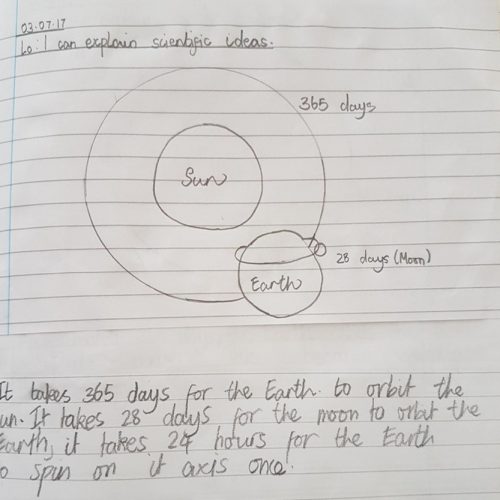 03.07.17
Lo: I can explain scientific ideas.
365 days
Sun
28 days (Moon)
Earth
It takes 365 days for the Earth. to orbit the
un. It takes 28 days for the moon to orbit the
Earth, it takes 24 hours for the Earth
o spin on it axis once.